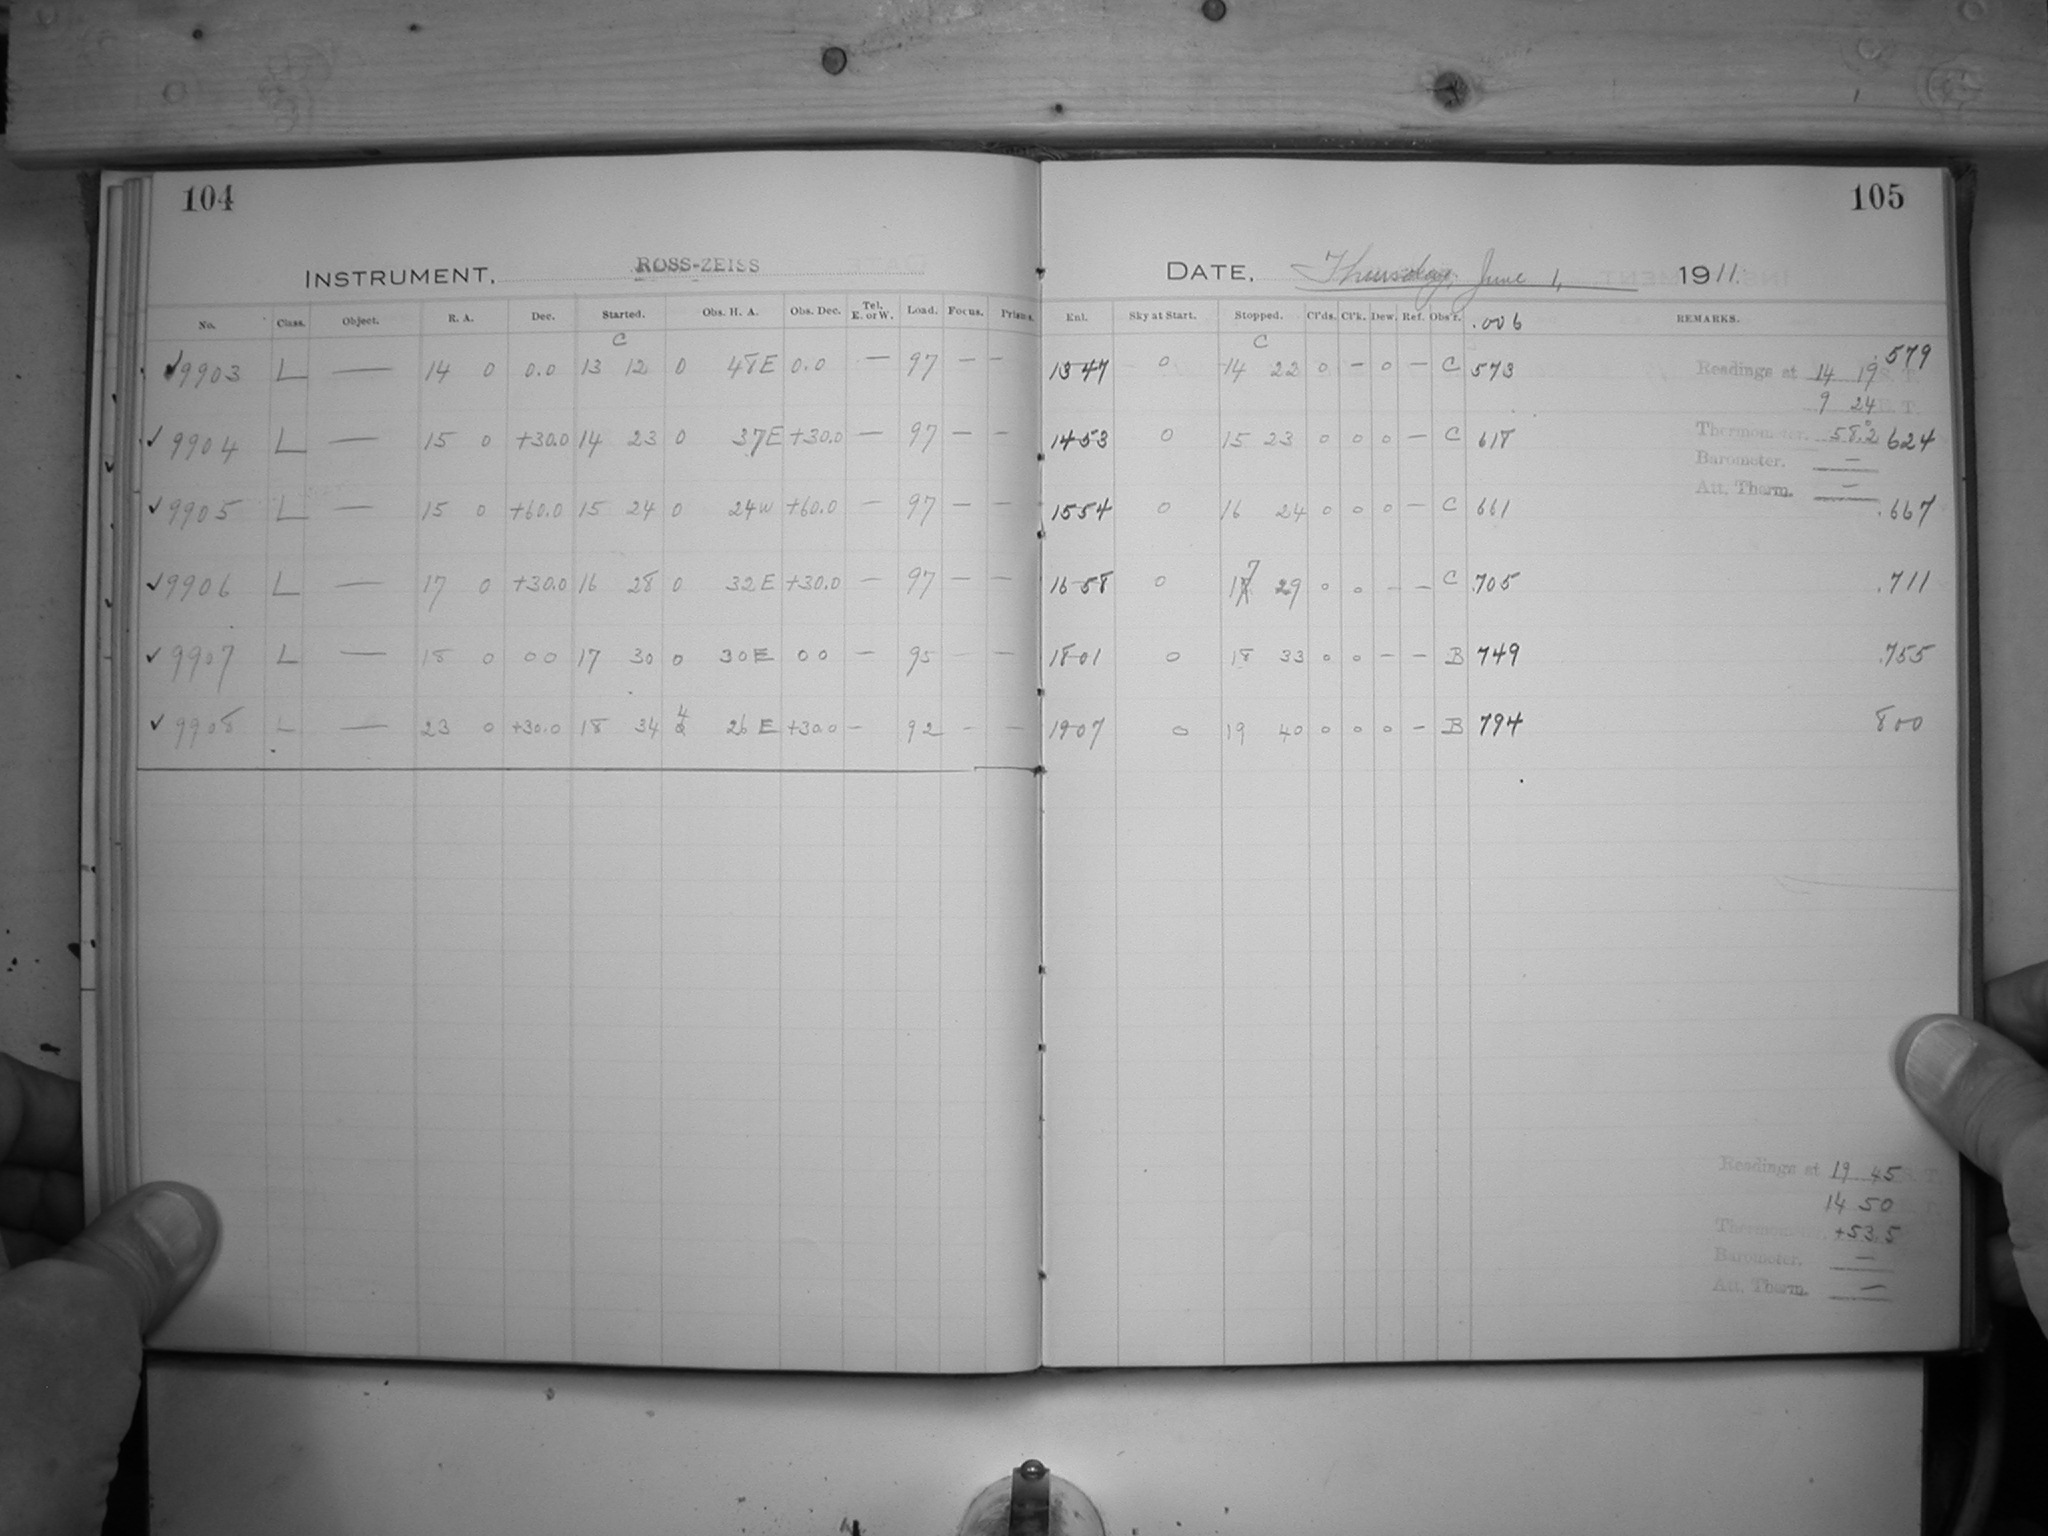 104
105
INSTRUMENT, ROSS-ZEISS
DATE, Thursday, June 1, 1911.
No. Class. Object. R. A. Dec. Started. Obs. H. A. Obs. Dec. Tel. E. or W. Load. Focus. Prisms. Exl. Sky at Start. Stopped. Cl'ds. Cl'k. Dew. Ref. Obs'r. .006 REMARKS.
C C
✓9903 L — 14 0 0.0 13 12 0 48E 0.0 — 97 — — 13 47 0 14 22 0 — 0 — C 573 .579
Readings at 14 19 S. T.
9 24
✓9904 L — 15 0 +30.0 14 23 0 37E +30.0 — 97 — — 14 53 0 15 23 0 0 0 — C 618 624
Thermometer. 58.2
Barometer. —
Att. Therm. —
✓9905 L — 15 0 +60.0 15 24 0 24W +60.0 — 97 — — 15 54 0 16 24 0 0 0 — C 661 .667
✓9906 L — 17 0 +30.0 16 28 0 32E +30.0 — 97 — — 16 58 0 17 29 0 0 — — C .705 .711
✓9907 L — 18 0 0 0 17 30 0 30E 0 0 — 95 — — 18 01 0 18 33 0 0 — — B 749 .755
✓9908 L — 23 0 +30.0 18 34 4 26 E +30.0 — 92 — — 19 07 0 19 40 0 0 0 — B 794 800
Readings at 19 45 S. T.
14 50
Thermometer. +53.5
Barometer. —
Att. Therm. —